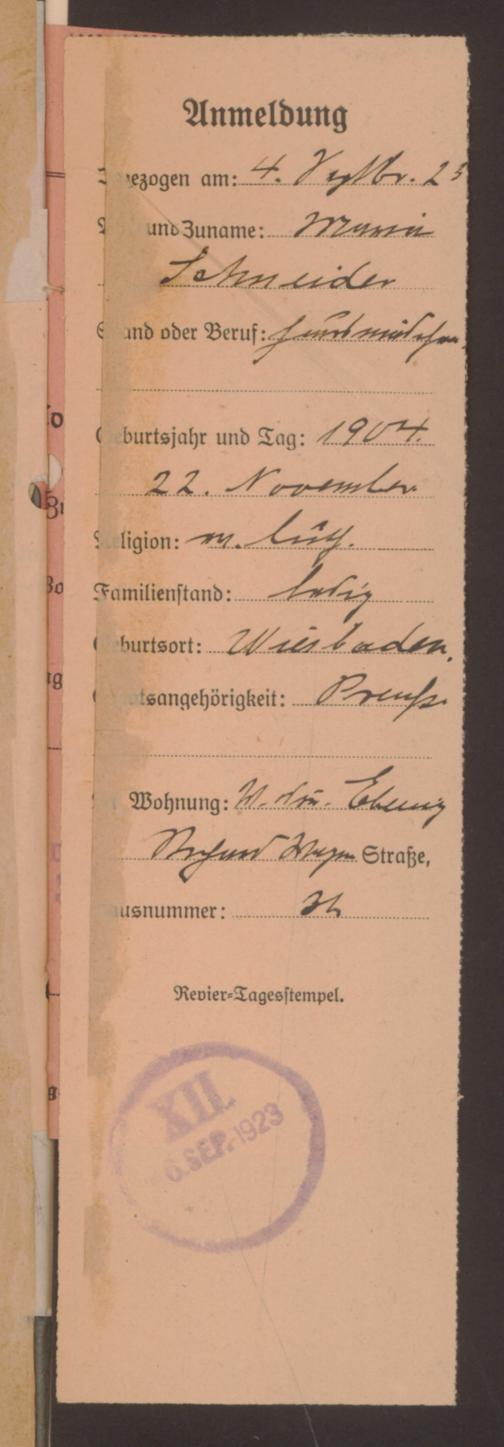 Anmeldung
ezogen am: 4. Septbr. 23
und Zuname: Maria
Schneider
and oder Beruf: Hausmädchen
burtsjahr und Tag: 1904.
22. November
ligion: luth.
Familienstand: ledig
burtsort: Wiesbaden.
tsangehörigkeit: Preuß.
Wohnung:
Richard Wagner Straße,
usnummer:
Revier-Tagesstempel.
XII.
6. SEP. 1923